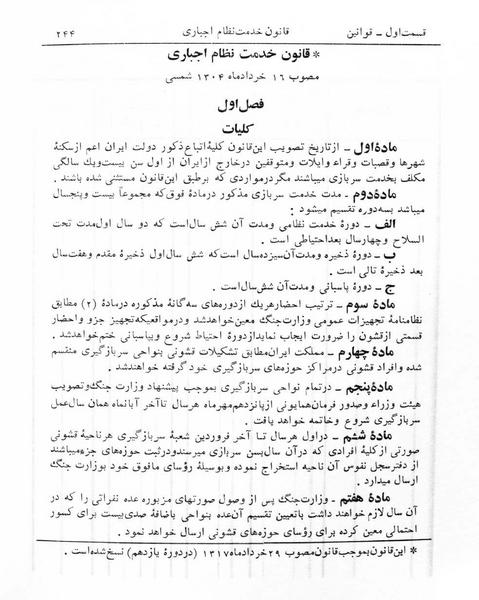 قسمت اول ـ قوانین
قانون خدمت نظام اجباری
۲۴۴
* قانون خدمت نظام اجباری
مصوب ۱۶ خردادماه ۱۳۰۴ شمسی
فصل اول
کلیات
مادهٔ اول ـ از تاریخ تصویب این قانون کلیهٔ اتباع ذکور دولت ایران اعم از سکنهٔ
شهرها و قصبات و قراء و ایلات و متوقفین در خارج از ایران از اول سن بیست و یک سالگی
مکلف بخدمت سربازی میباشند مگر در مواردی که بر طبق این قانون مستثنی شده باشند .
مادهٔ دوم ـ مدت خدمت سربازی مذکور در مادهٔ فوق که مجموعاً بیست و پنجسال
میباشد بسه دوره تقسیم میشود :
الف ـ دورهٔ خدمت نظامی و مدت آن شش سال است که دو سال اول مدت تحت
السلاح و چهار سال بعد احتیاطی است .
ب ـ دورهٔ ذخیره و مدت آن سیزده سال است که شش سال اول ذخیرهٔ مقدم و هفت سال
بعد ذخیرهٔ تالی است .
ج ـ دورهٔ پاسبانی و مدت آن شش سال است .
مادهٔ سوم ـ ترتیب احضار هر یک از دوره‌های سه گانهٔ مذکوره در مادهٔ (۲) مطابق
نظامنامهٔ تجهیزات عمومی وزارت جنگ معین خواهد شد و در مواقعیکه تجهیز جزو و احضار
قسمتی از قشون را ضرورت ایجاب نماید از دورهٔ احتیاط شروع و بپاسبانی ختم خواهد شد .
مادهٔ چهارم ـ مملکت ایران مطابق تشکیلات قشونی بنواحی سربازگیری منقسم
شده و افراد قشونی در مراکز حوزه‌های سربازگیری خود گرفته خواهند شد .
مادهٔ پنجم ـ در تمام نواحی سربازگیری بموجب پیشنهاد وزارت جنگ و تصویب
هیئت وزراء و صدور فرمان همایونی از پانزدهم مهرماه هر سال تا آخر آبانماه همان سال عمل
سربازگیری شروع و خاتمه خواهد یافت .
مادهٔ ششم ـ در اول هر سال تا آخر فروردین شعبهٔ سربازگیری هر ناحیهٔ قشونی
صورتی از کلیهٔ افرادی که در آن سال بسن سربازی میرسند و در ثبت حوزه‌های جزء میباشند
از دفتر سجل نفوس آن ناحیه استخراج نموده و بوسیلهٔ رؤسای مافوق خود بوزارت جنگ
ارسال میدارد .
مادهٔ هفتم ـ وزارت جنگ پس از وصول صورتهای مزبوره عده نفراتی را که در
آن سال لازم خواهند داشت با تعیین تقسیم آن عده بنواحی باضافهٔ صدی بیست برای کسور
احتمالی معین کرده برای رؤسای حوزه‌های قشونی ارسال خواهد نمود .
* این قانون بموجب قانون مصوب ۲۹ خردادماه ۱۳۱۷ (در دورهٔ یازدهم) نسخ شده است .